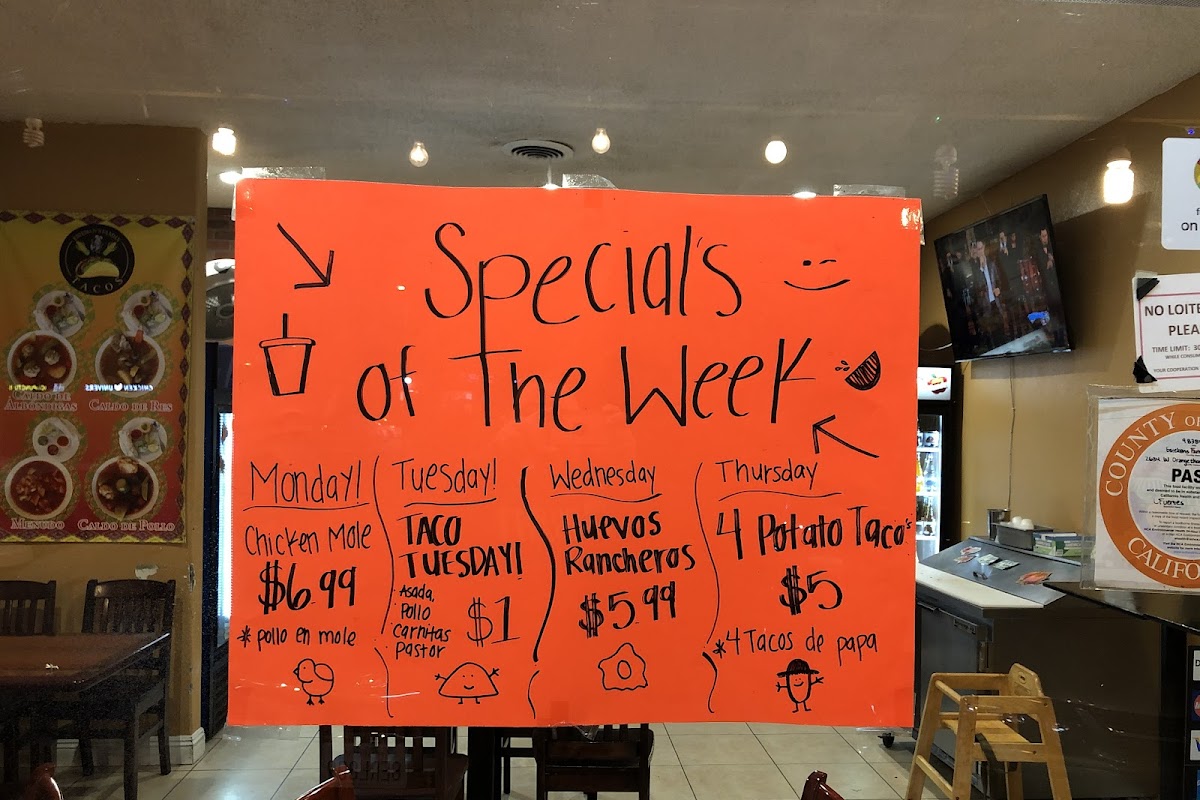 Special's
of The Week
Monday!
Chicken Mole
$6.99
* pollo en mole
Tuesday!
TACO
TUESDAY!
Asada,
Pollo
Carnitas
Pastor
$1
Wednesday
Huevos
Rancheros
$5.99
Thursday
4 Potato Taco's
$5
*4 Tacos de papa
TACOS
CALDO DE
ALBONDIGAS
CALDO DE RES
MENUDO
CALDO DE POLLO
on
NO LOITE
PLEA
TIME LIMIT: 30
WHILE CONSUM
YOUR COOPERATION
COUNTY OF
PAS
CALIFO